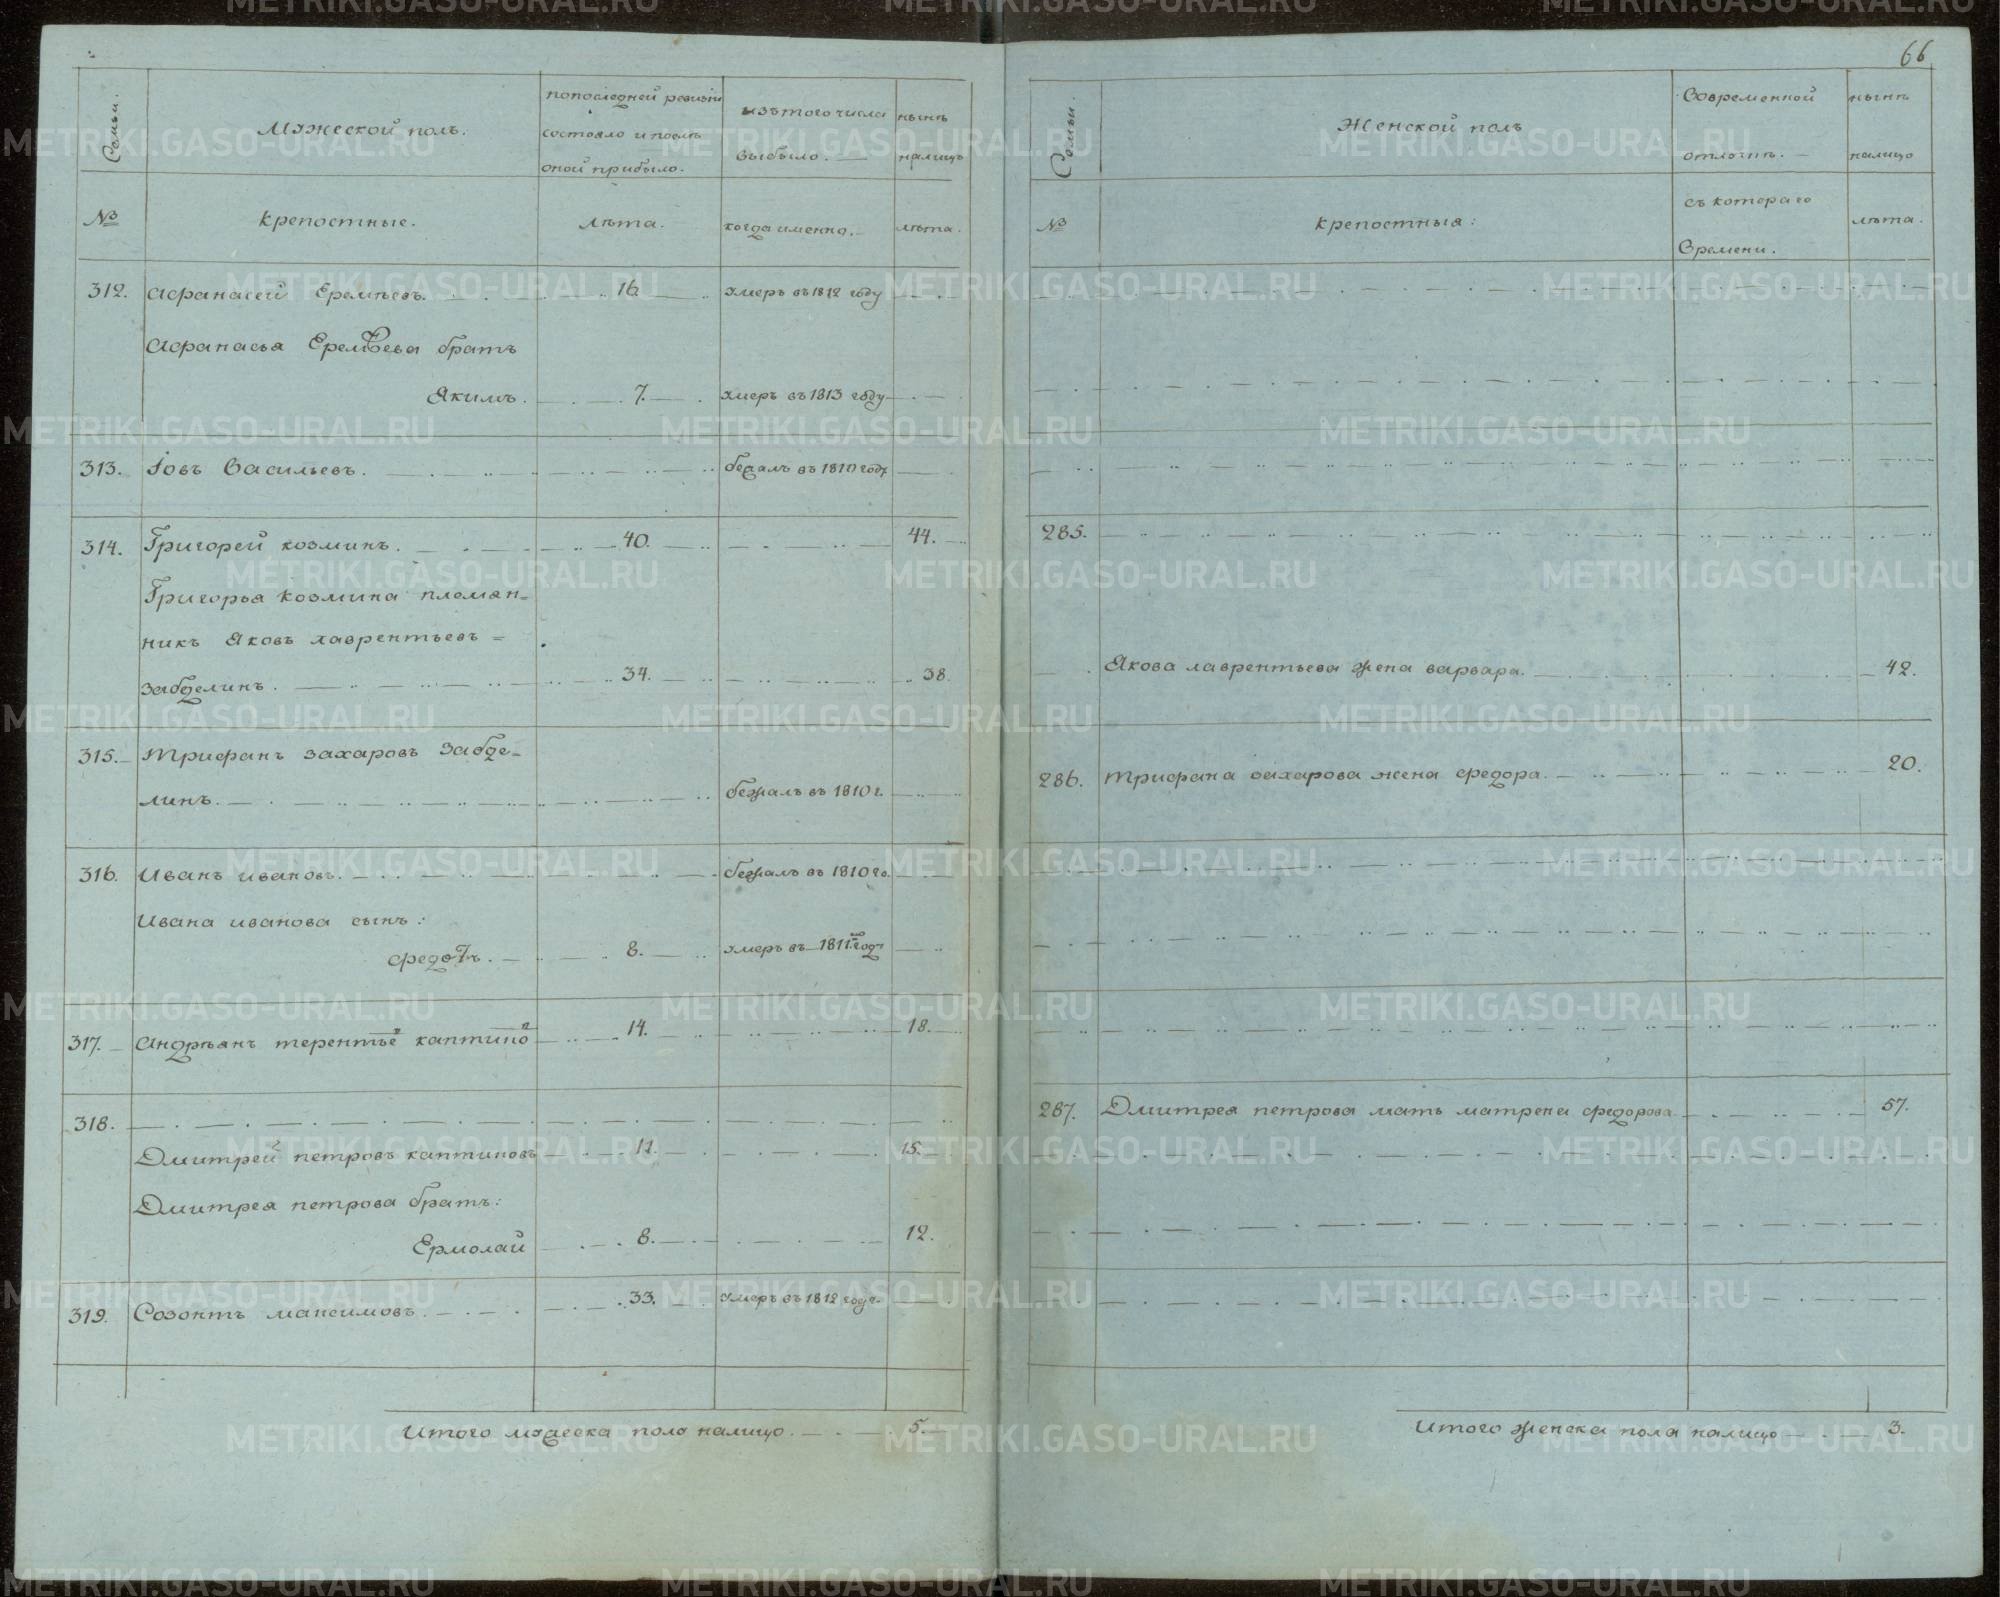 66
Семьи.
Мужеской полъ.
попоследней ревизіи
состояло и послѣ
оной прибыло.
изътого числа
выбыло.
нынѣ
налицо
№
крепостные.
лѣта.
когда именно.
лѣта.
312. Афанасей Еремѣевъ. 16. умеръ въ 1812 году
Афанасья Еремѣева братъ
Якимъ. 7. умеръ въ 1813 году
313. Іовъ Васильевъ. бежалъ въ 1810 году
314. Григорей козминъ. 40. 44.
Григорья козмина племян-
никъ Яковъ лаврентьевъ =
забѣлинъ. 34. 38.
315. Трифанъ захаровъ забѣ-
линъ. бежалъ въ 1810 г.
316. Иванъ ивановъ. бежалъ въ 1810 го.
Ивана иванова сынъ:
федотъ. 8. умеръ въ 1811м году
317. Андрѣянъ терентьевъ каптиновъ 14. 18.
318.
Дмитрей петровъ каптиновъ 11. 15.
Дмитрея петрова братъ:
Ермолай 8. 12.
319. Созонтъ максимовъ. 33. умеръ въ 1812 году.
Итого мужеска пола налицо. 5.
Семьи.
Женской полъ
Современной
отлучке.
нынѣ
налицо
№
крепостныя:
съ котораго
времени.
лѣта.
285.
Якова лаврентьева жена варвара. 42.
286. Трифана захарова жена федора. 20.
287. Дмитрея петрова мать матрена федорова 57.
Итого женска пола налицо 3.
METRIKI.GASO-URAL.RU